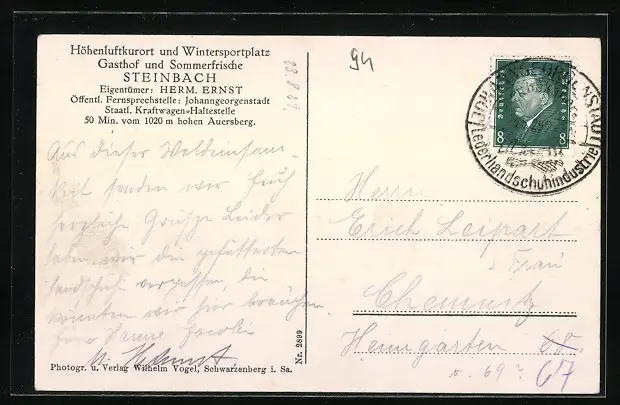 Höhenluftkurort und Wintersportplatz
Gasthof und Sommerfrische
STEINBACH
Eigentümer: HERM. ERNST
Öffentl. Fernsprechstelle: Johanngeorgenstadt
Staatl. Kraftwagen-Haltestelle
50 Min. vom 1020 m hohen Auersberg.
Aus dieser Waldeinsam-
keit senden wir Euch
herzliche Grüsse Leider
haben wir die gefütterten
Handschuh vergessen, die
könnten wir hier brauchen.
Hanne
u. Helmut
Photogr. u. Verlag Wilhelm Vogel, Schwarzenberg i. Sa.
Nr. 2899
94
Deutsches Reich
8 8
JOHANNGEORGENSTADT
Lederhandschuhindustrie
Herrn
Erich Leipart
u. Frau
Chemnitz
Heimgarten
67
v. 69?